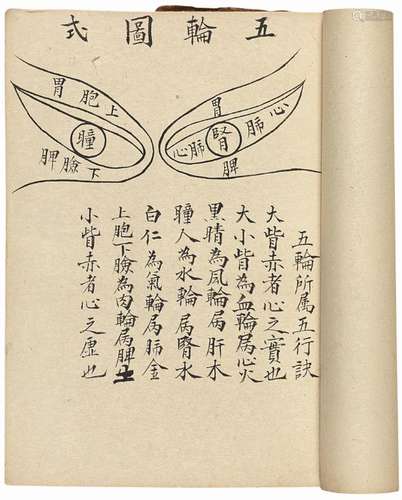 五輪圖式
胃
心
肺
腎
肺
心
脾
上胞胃
瞳
下臉脾
五輪所属五行訣
大眥赤者心之實也
大小眥為血輪属心火
黑睛為風輪属肝木
瞳人為水輪属腎水
白仁為氣輪属肺金
上胞下臉為肉輪属脾土
小眥赤者心之虛也